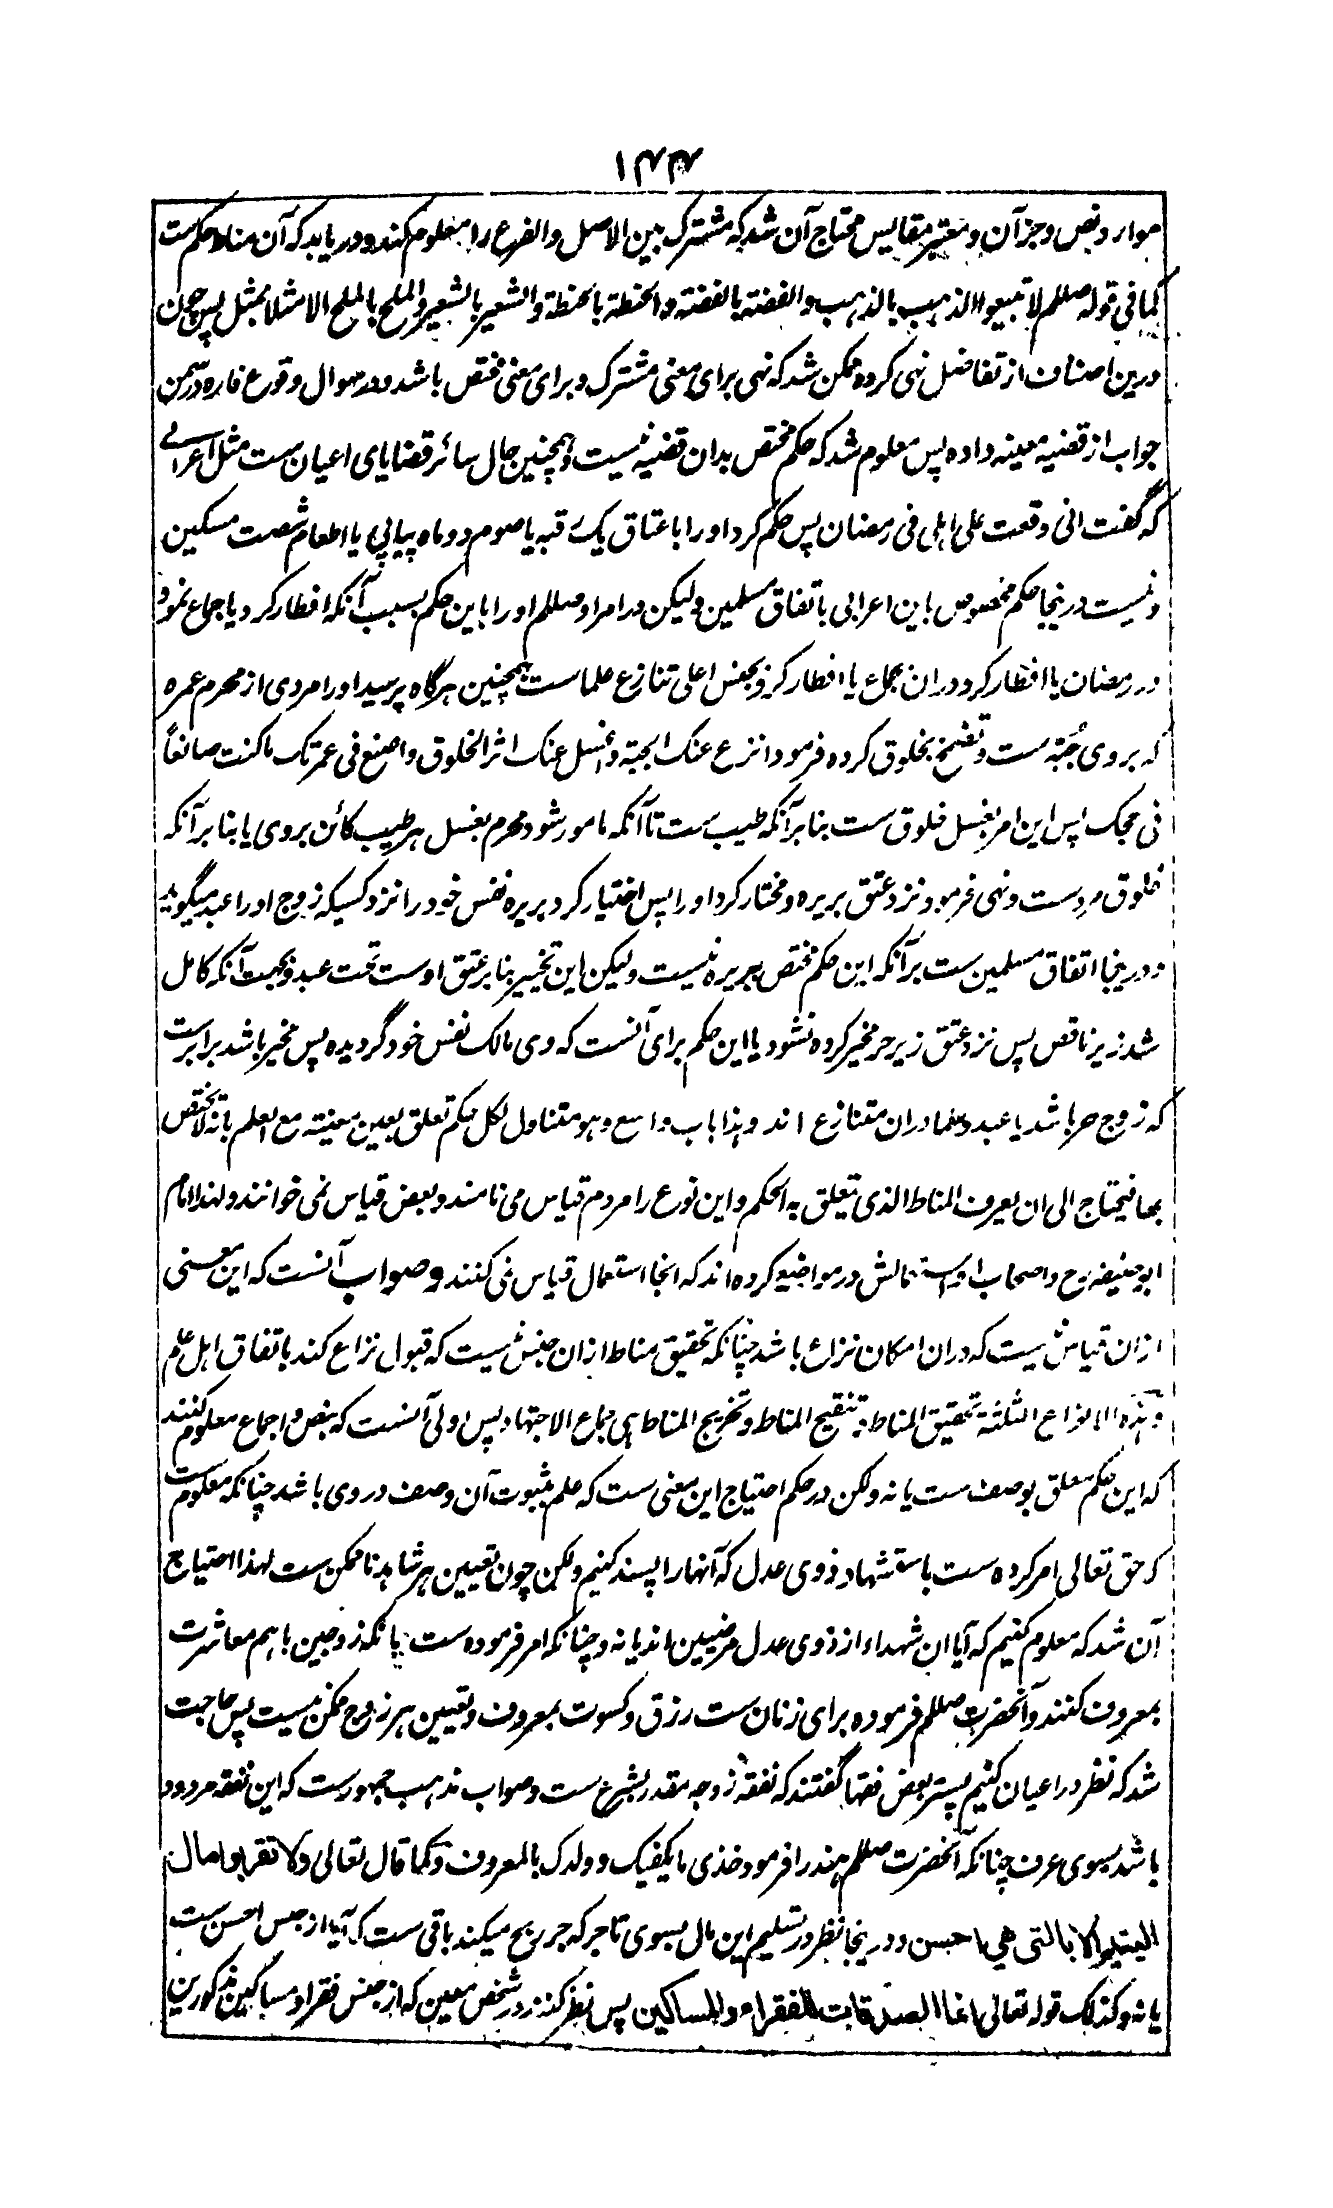 ۱۴۴
موارد نص وجز آن ومعتبر مقاییس محتاج آن شد که مشترک بین الاصل والفرع را معلوم کند ودریابد که آن مناط حکم ست
کما فی قوله صللم لا تبیعوا الذهب بالذهب والفضة بالفضة والحنطة بالحنطة والشعیر بالشعیر والملح بالملح الا مثلا بمثل پس چون
درین اصناف از تفاضل نهی کرده ممکن شد که نهی برای معنی مشترک وبرای معنی مختص باشد ودر سوال وقوع فاره در سمن
جواب از قضیه معینه داده پس معلوم شد که حکم مختص بدان قضیه نیست وهمچنین حال سائر قضایای اعیان ست مثل اعرابی
که گفت انی وقعت علی اهلی فی رمضان پس حکم کرد اورا باعتاق یک رقبه یا صوم دو ماه پیاپی یا اطعام شصت مسکین
ونیست درینجا حکم مخصوص باین اعرابی باتفاق مسلمین ولیکن در امر او صللم اورا باین حکم بسبب آنکه افطار کرد یا جماع نمود
در رمضان یا افطار کرد دران بجماع یا افطار کرد بجنس اعلی تنازع علماست همچنین هرگاه پرسید اورا مردی از محرم عمره
که بروی جُبّه ست وتضمخ بخلوق کرده فرمود انزع عنک الجبة واغسل عنک اثر الخلوق واصنع فی عمرتک ما کنت صانعاً
فی حجک پس این امر بغسل خلوق ست بنا برآنکه طیب ست تا آنکه مامور شود محرم بغسل هر طیب کائن بروی یا بنا برآنکه
خلوق مرد ست ونهی فرمود نزد عتق بریره ومختار کرد اورا پس اختیار کرد بریره نفس خود را نزد کسیکه زوج اورا عبد میگوید
ودرینجا اتفاق مسلمین ست برآنکه این حکم مختص ببریره نیست ولیکن این تخییر بنا بر عتق اوست تحت عبد وبجهت آنکه کامل
شد زیر ناقص پس نزد عتق زیر حر مخیر کرده نشود یا این حکم برای آنست که وی مالک نفس خود گردیده پس مخیر باشد برابرست
که زوج حر باشد یا عبد وعلما دران متنازع اند وهذا باب واسع وهو متناول لکل حکم تعلق بعین معینة مع العلم بانه لا یختص
بها فیحتاج الی ان یعرف المناط الذی یتعلق به الحکم واین نوع را مردم قیاس می نامند وبعض قیاس نمی خوانند ولهذا امام
ابوحنیفه رح واصحاب او استعمالش در مواضع کرده اند که انجا استعمال قیاس نمی کنند وصواب آنست که این معنی
ازان قیاس نیست که دران امکان نزاع باشد چنانکه تحقیق مناط ازان جنس نیست که قبول نزاع کند باتفاق اهل علم
وهذه الانواع الثلثة تحقیق المناط وتنقیح المناط وتخریج المناط هی جماع الاجتهاد پس اولی آنست که بنص واجماع معلوم کنند
که این حکم معلق بوصف ست یا نه ولکن در حکم احتیاج این معنی ست که علم بثبوت آن وصف در وی باشد چنانکه معلوم ست
که حق تعالی امر کرده ست باستشهاد ذوی عدل که آنها را پسند کنیم ولکن چون تعیین هر شاهد ناممکن ست لهذا احتیاج
آن شد که معلوم کنیم که آیا این شهداء از ذوی عدل مرضیین اند یا نه وچنانکه امر فرموده ست بانکه زوجین باهم معاشرت
بمعروف کنند وآنحضرت صللم فرموده برای زنان ست رزق وکسوت بمعروف وتعیین هر زوج ممکن نیست پس حاجت
شد که نظر در اعیان کنیم پستر بعض فقها گفتند که نفقه زوجه مقدر بشرع ست وصواب مذهب جمهور ست که این نفقه مردود
باشد بسوی عرف چنانکه آنحضرت صللم هند را فرمود خذی ما یکفیک وولدک بالمعروف وکما قال تعالی ولا تقربوا مال
الیتیم الا بالتی هی احسن ودرینجا نظر در تسلیم این مال بسوی تاجر که جز ربح میکند باقی ست که آیا از جنس احسن ست
یا نه وکذلک قوله تعالی انما الصدقات للفقراء والمساکین پس نظر کنند در شخص معین که از جنس فقرا ومساکین مذکورین